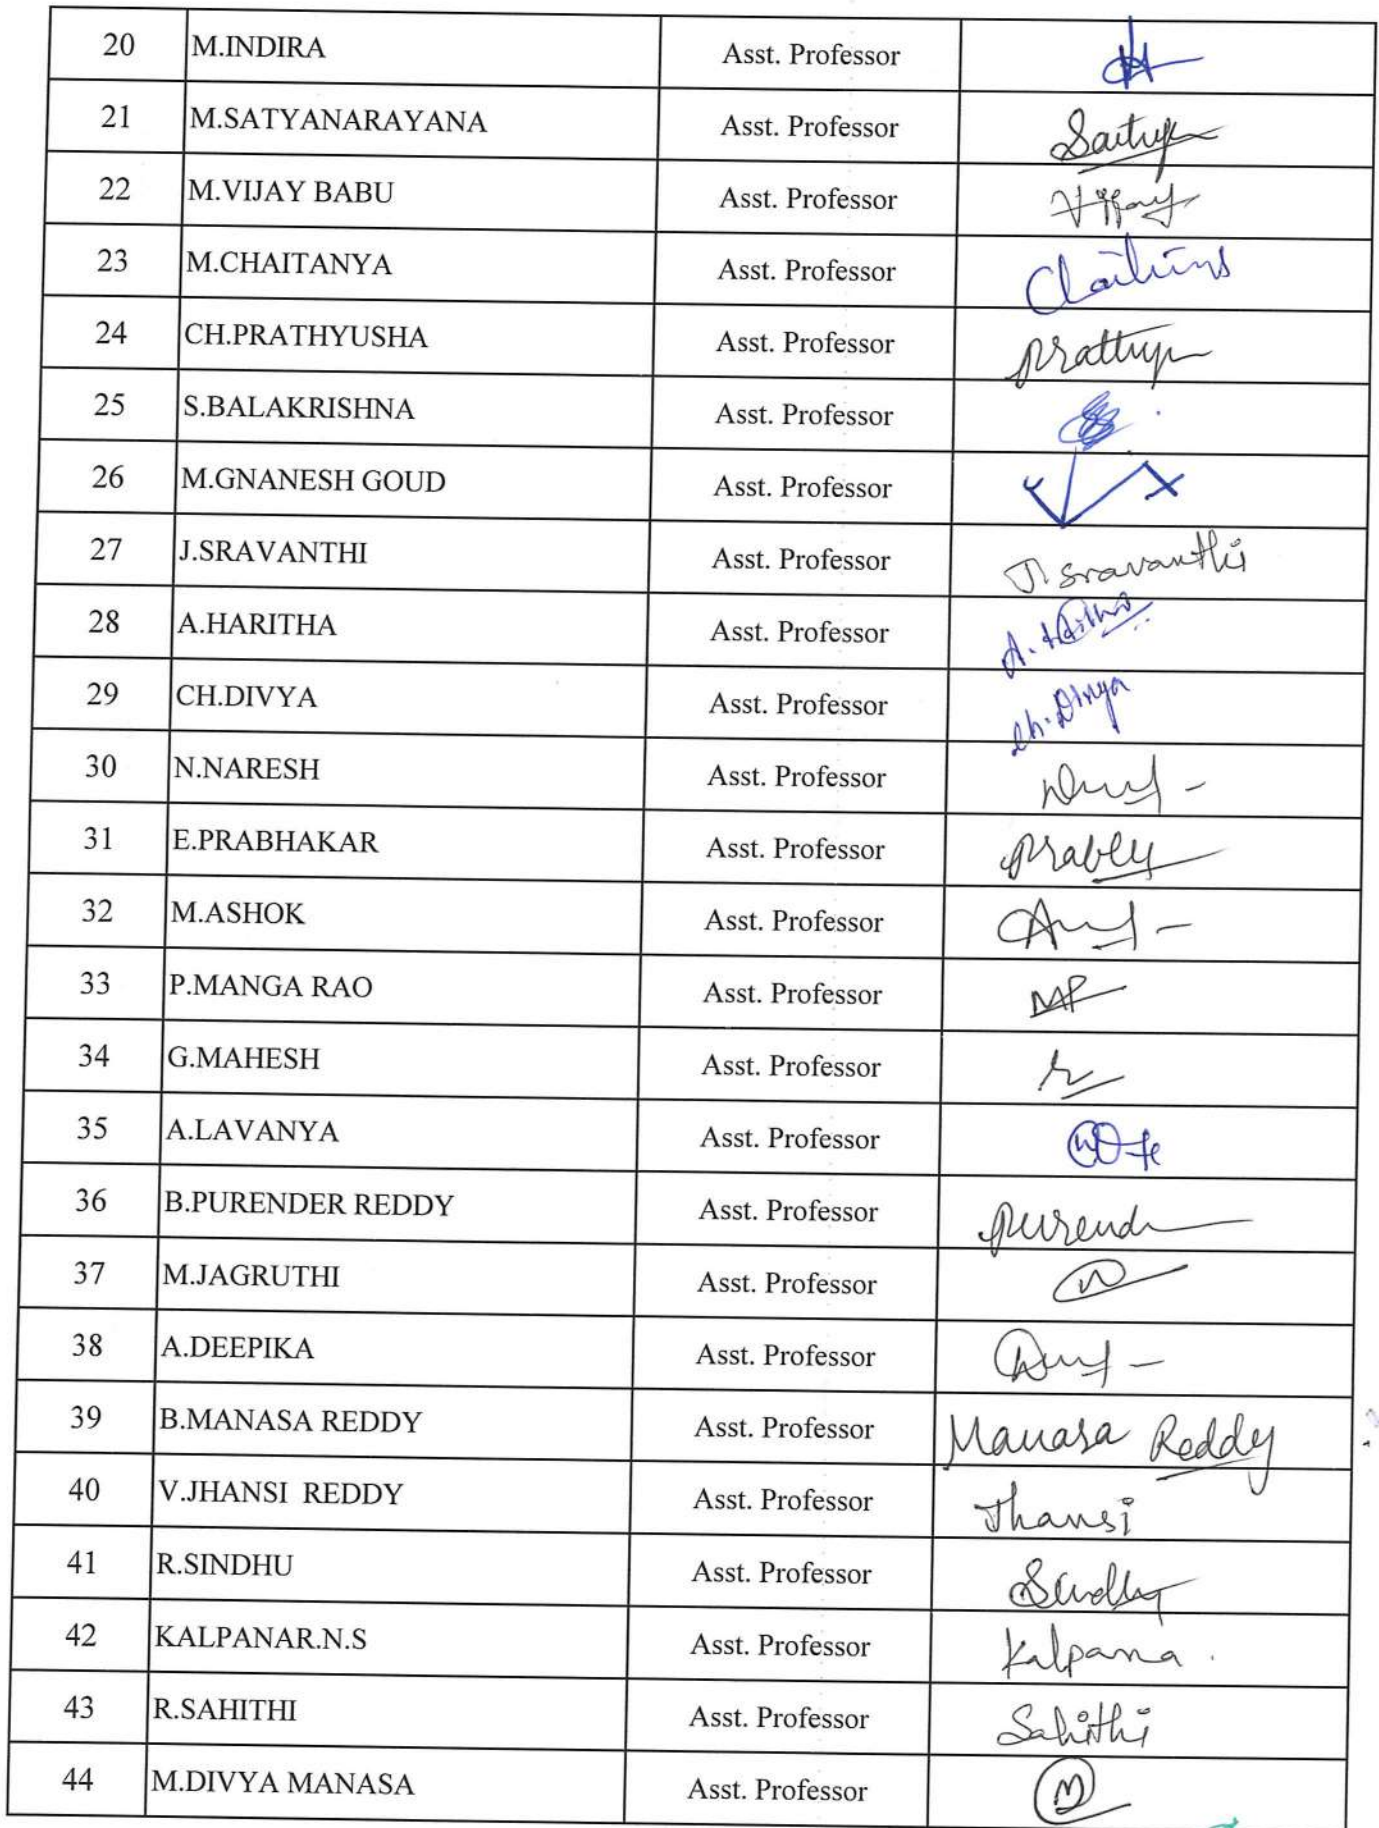 20 M.INDIRA Asst. Professor
21 M.SATYANARAYANA Asst. Professor Satya
22 M.VIJAY BABU Asst. Professor Vijay
23 M.CHAITANYA Asst. Professor
24 CH.PRATHYUSHA Asst. Professor
25 S.BALAKRISHNA Asst. Professor
26 M.GNANESH GOUD Asst. Professor
27 J.SRAVANTHI Asst. Professor J. Sravanthi
28 A.HARITHA Asst. Professor A. Haritha
29 CH.DIVYA Asst. Professor ch. Divya
30 N.NARESH Asst. Professor
31 E.PRABHAKAR Asst. Professor
32 M.ASHOK Asst. Professor
33 P.MANGA RAO Asst. Professor MP
34 G.MAHESH Asst. Professor
35 A.LAVANYA Asst. Professor
36 B.PURENDER REDDY Asst. Professor
37 M.JAGRUTHI Asst. Professor
38 A.DEEPIKA Asst. Professor
39 B.MANASA REDDY Asst. Professor Manasa Reddy
40 V.JHANSI REDDY Asst. Professor Jhansi
41 R.SINDHU Asst. Professor
42 KALPANAR.N.S Asst. Professor Kalpana .
43 R.SAHITHI Asst. Professor Sahithi
44 M.DIVYA MANASA Asst. Professor